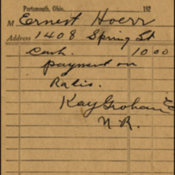 Portsmouth, Ohio, 192
M Ernest Hoerr
Address 1408 Spring St
Cash. 10 00
payment on
Radio.
Kay Graham
N.R.